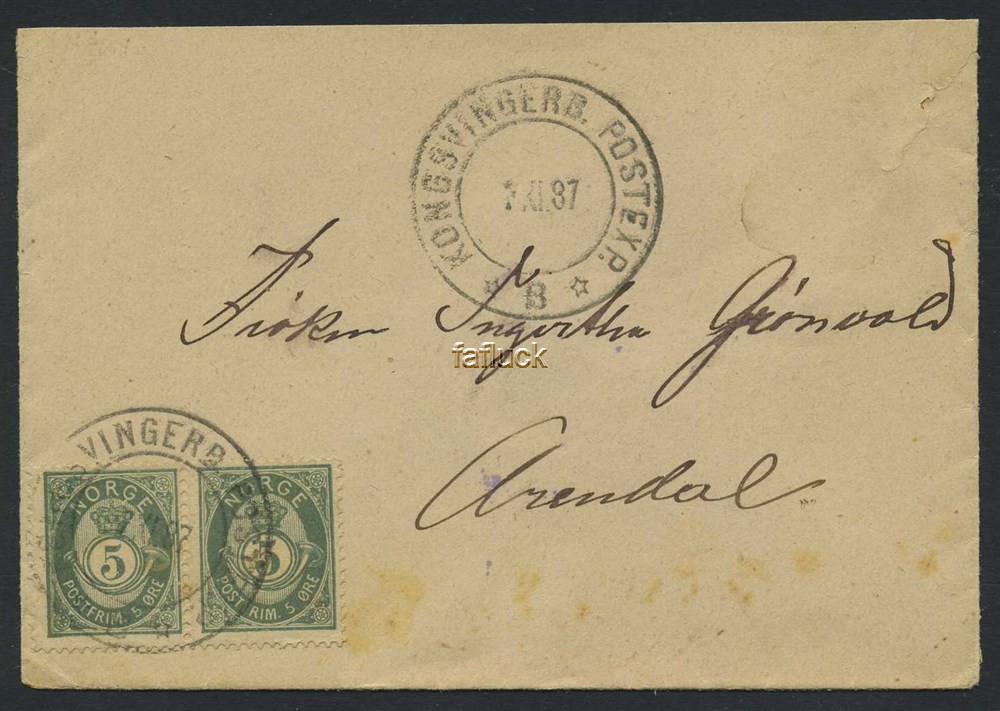 KONGSVINGERB. POSTEXP.
7 XI. 87
B
Frøken Ingertha Grønvold
fafluck
Arendal
VINGERB.
NORGE NORGE
5 5
POSTFRIM. 5 ØRE POSTFRIM. 5 ØRE